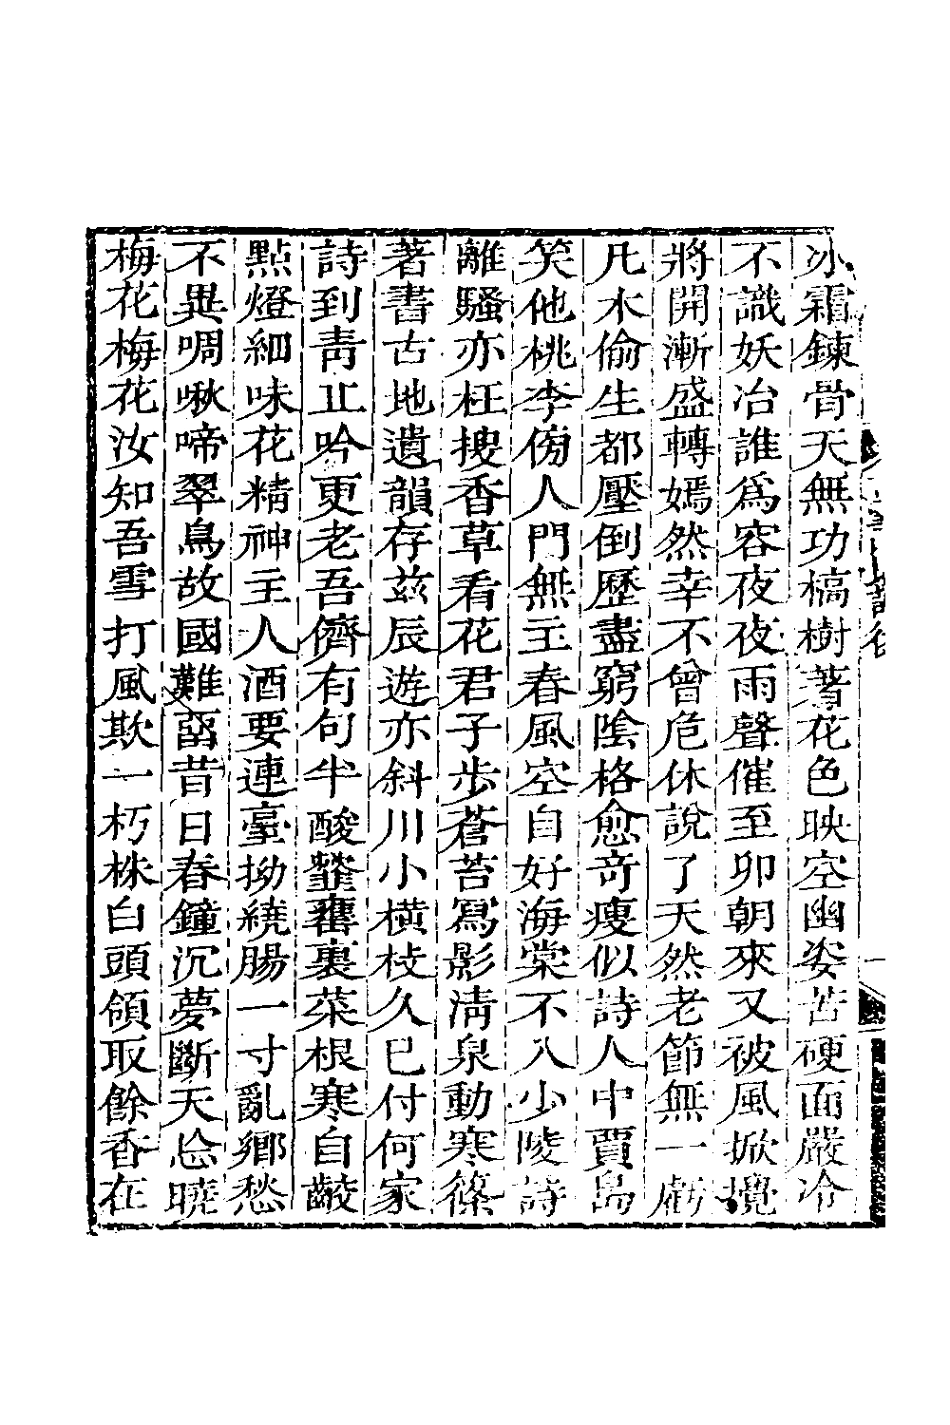 冰霜鍊骨天無功槁樹著花色映空幽姿苦硬面嚴冷
不識妖冶誰爲容夜夜雨聲催至卯朝來又被風掀攪
將開漸盛轉嫣然幸不曾危休說了天然老節無一虧
凡木偷生都壓倒歷盡窮陰格愈奇瘦似詩人中賈島
笑他桃李傍人門無主春風空自好海棠不入少陵詩
離騷亦枉搜香草看花君子步蒼苔寫影清泉動寒篠
著書古地遺韻存茲辰遊亦斜川小橫枝久已付何家
詩到青丘吟更老吾儕有句半酸虀甕裏菜根寒自齩
點燈細味花精神主人酒要連臺拗繞腸一寸亂鄉愁
不異啁啾啼翠鳥故國難留昔日春鐘沉夢斷天忩曉
梅花梅花汝知吾雪打風欺一朽株白頭領取餘香在